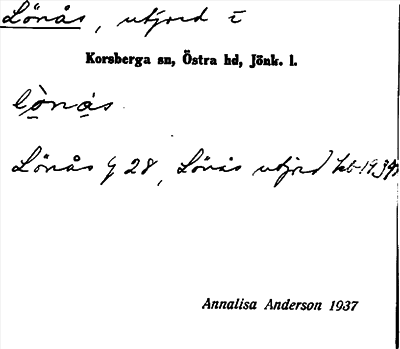 Lönås, utjord i
Korsberga sn, Östra hd, Jönk. l.
lò̤nás
Lönås G 28, Lönås utjord
Annalisa Anderson 1937